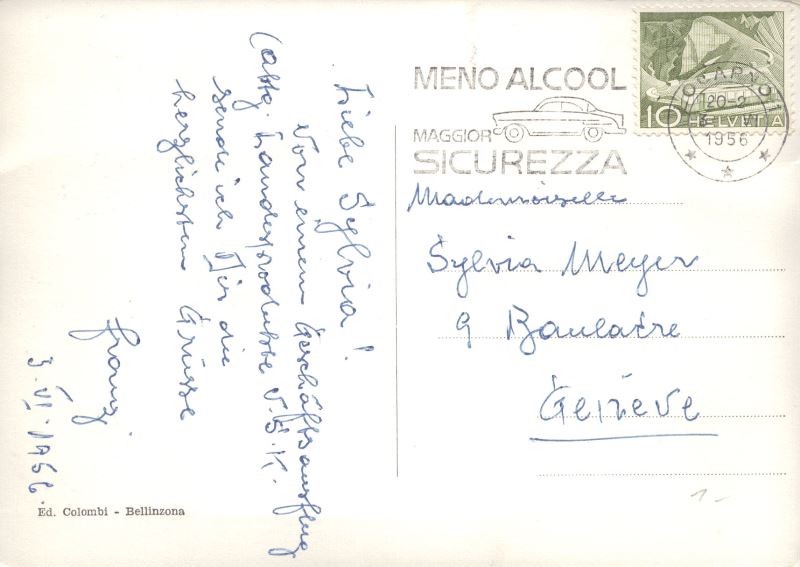 Liebe Sylvia!
Von einem Geschäftsausflug
(abtg. Landesprodukte V.S.K.
sende ich Dir die
herzlichsten Grüsse
Franz
3. VI. 1956.
Ed. Colombi - Bellinzona
MENO ALCOOL
MAGGIOR
SICUREZZA
LOCARNO 1
20-2
VI
1956
10 HELVETIA
Mademoiselle
Sylvia Meyer
9 Baulacre
Genève
1.-